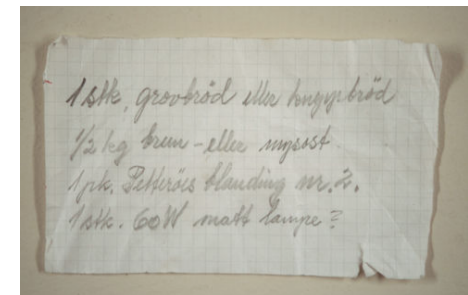 1 stk. grovbröd eller knyppbröd
1/2 kg brun - eller mysost.
1 pk. Petteröes blanding nr. 2.
1 stk. 60W matt lampe?